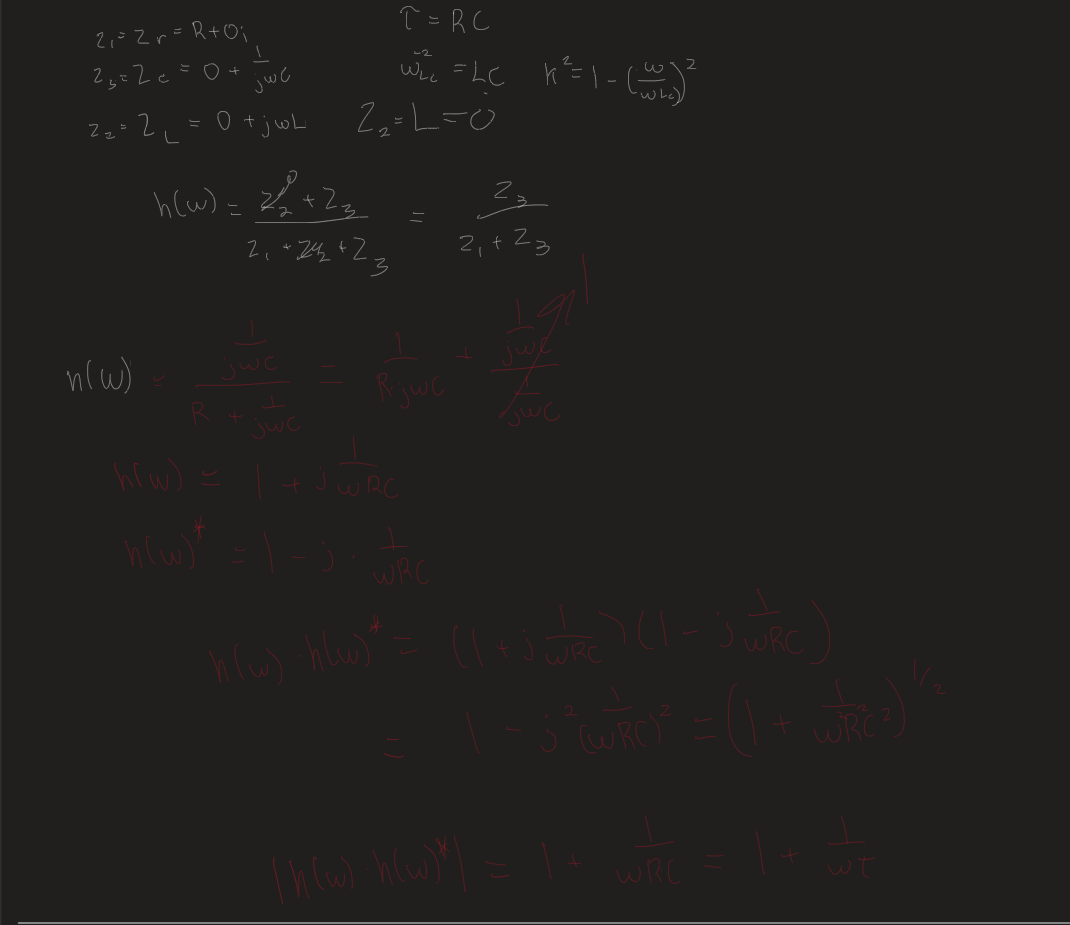 z₁ = Z r = R + 0i
τ = RC
z₃ = Z c = 0 + 1/(jωC)
ω_LC⁻² = LC
k² = 1 - (ω/ω_LC)²
z₂ = Z_L = 0 + jωL
Z₂ = L = 0
h(ω) = (Z₂ + Z₃)/(Z₁ + Z₂ + Z₃) = Z₃/(Z₁ + Z₃)
h(ω) = (1/(jωC))/(R + 1/(jωC)) = 1/(R·jωC) + (1/(jωC))/(1/(jωC)) 1
h(ω) = 1 + j 1/(ωRC)
h(ω)* = 1 - j · 1/(ωRC)
h(ω) · h(ω)* = (1 + j 1/(ωRC))(1 - j 1/(ωRC))
= 1 - j² 1/(ωRC)² = (1 + 1/(ω²R²C²))^(1/2)
|h(ω) · h(ω)*| = 1 + 1/(ωRC) = 1 + 1/(ωτ)